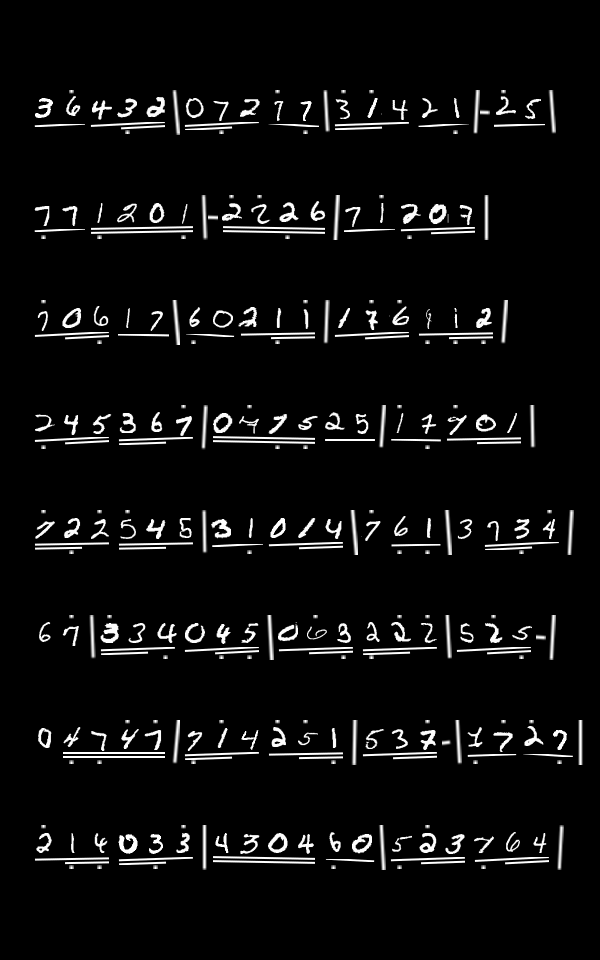 36432|07277|31421|-25|
771201|-2226|71207|
70617|60211|176112|
245367|047525|17901|
722545|31014|761|3734|
67|334045|063222|525-|
04747|714251|537-|1727|
214033|430460|523764|